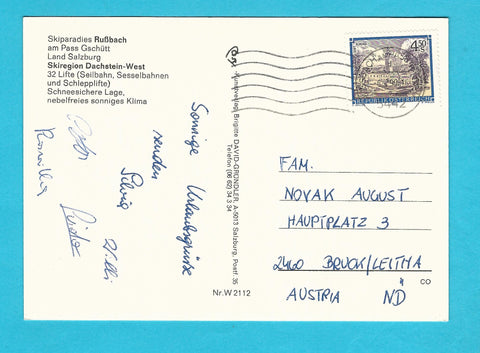 Skiparadies Rußbach
am Pass Gschütt
Land Salzburg
Skiregion Dachstein-West
32 Lifte (Seilbahn, Sesselbahnen
und Schlepplifte)
Schneesichere Lage,
nebelfreies sonniges Klima
Sonnige Urlaubsgrüsse
senden
Silvia
Familie
Kunstverlag Brigitte DAVID-GRÜNDLER, A-5013 Salzburg, Postf. 35
Telefon (06 62) 34 3 34
Nr. W 2112
4.50
REPUBLIK ÖSTERREICH
5442
FAM.
NOVAK AUGUST
HAUPTPLATZ 3
2460 BRUCK/LEITHA
CO
AUSTRIA NÖ